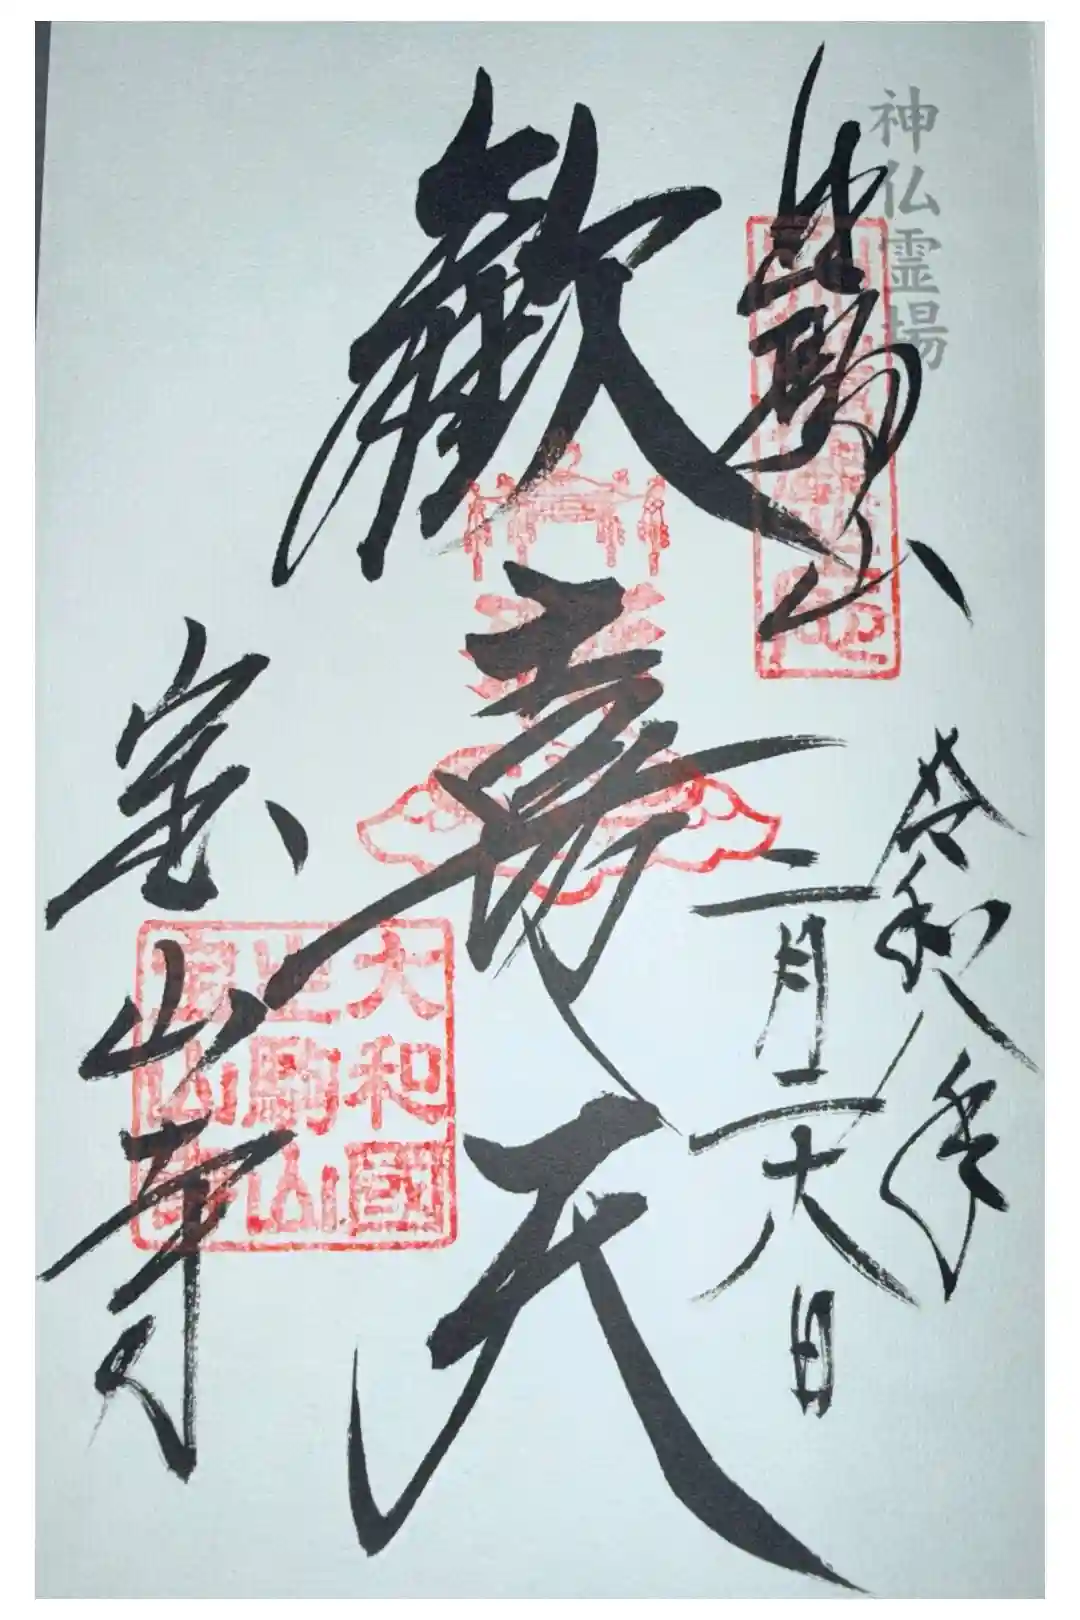 神仏霊場
生駒山
令和八年
二月二十八日
歡喜天
宝山寺
大和國
生駒山
寶山寺